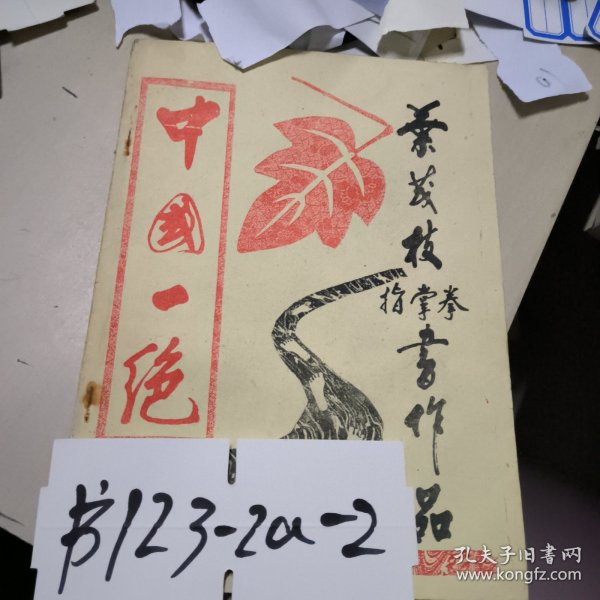 中國一絶
葉茂枝
指掌拳
書作品
书123-2a-2
孔夫子旧書网
www.kongfz.com